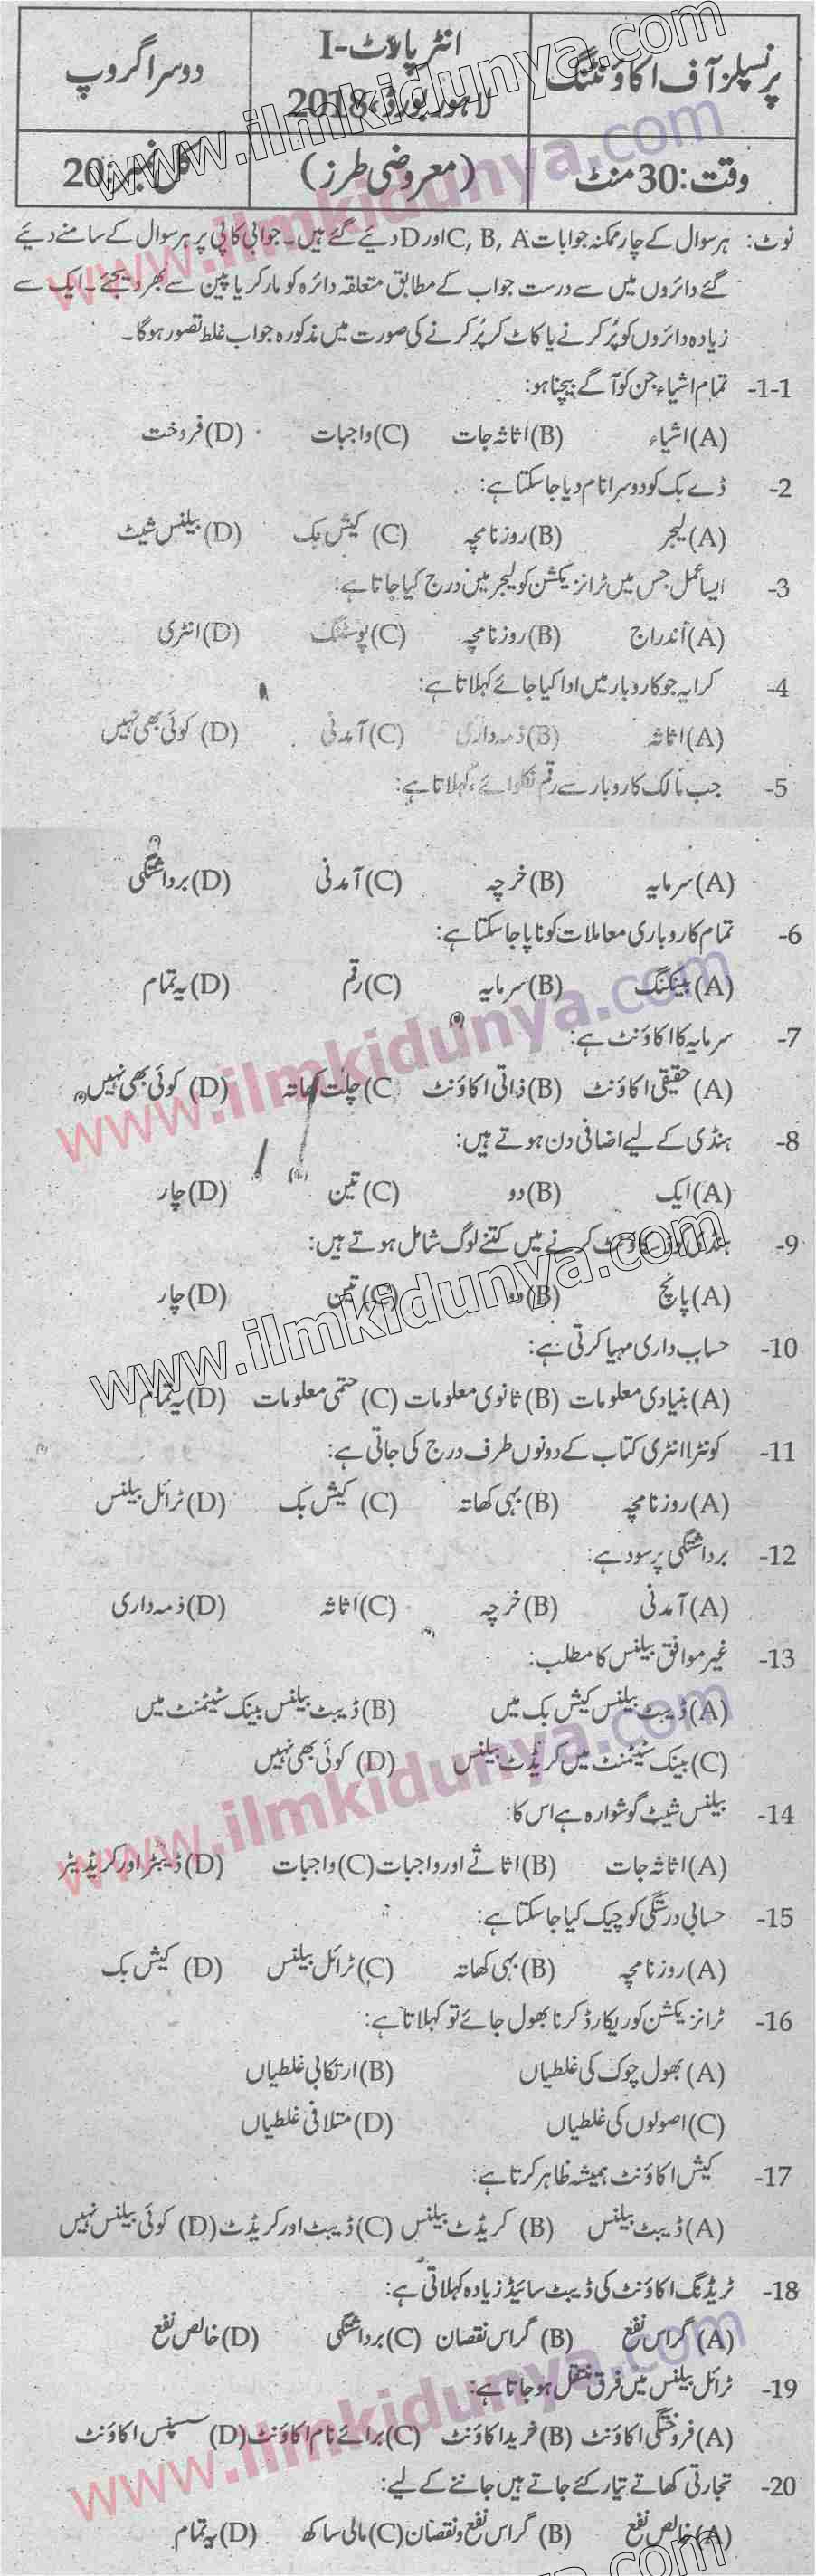 پرنسپلز آف اکاؤنٹنگ
انٹر پارٹ-I
لاہور بورڈ، 2018
دوسرا گروپ
وقت: 30 منٹ
(معروضی طرز)
کل نمبر: 20
نوٹ: ہر سوال کے چار ممکنہ جوابات C, B, A اور D دیئے گئے ہیں۔ جوابی کاپی پر ہر سوال کے سامنے دیئے
گئے دائروں میں سے درست جواب کے مطابق متعلقہ دائرہ کو مارکر یا پین سے بھر دیجئے۔ ایک سے
زیادہ دائروں کو پُر کرنے یا کاٹ کر پُر کرنے کی صورت میں مذکورہ جواب غلط تصور ہوگا۔
1-1- تمام اشیاء جن کو آگے بیچنا ہو:
(A) اشیاء (B) اثاثہ جات (C) واجبات (D) فروخت
2- ڈے بک کو دوسرا نام دیا جا سکتا ہے:
(A) لیجر (B) روزنامچہ (C) کیش بک (D) بیلنس شیٹ
3- ایسا عمل جس میں ٹرانزیکشن کو لیجر میں درج کیا جاتا ہے:
(A) اندراج (B) روزنامچہ (C) پوسٹنگ (D) انٹری
4- کرایہ جو کاروبار میں ادا کیا جائے کہلاتا ہے:
(A) اثاثہ (B) ذمہ داری (C) آمدنی (D) کوئی بھی نہیں
5- جب مالک کاروبار سے رقم نکلوائے، کہلاتا ہے:
(A) سرمایہ (B) خرچہ (C) آمدنی (D) برداشتگی
6- تمام کاروباری معاملات کو ناپا جا سکتا ہے:
(A) بینکنگ (B) سرمایہ (C) رقم (D) یہ تمام
7- سرمایہ کا اکاؤنٹ ہے:
(A) حقیقی اکاؤنٹ (B) ذاتی اکاؤنٹ (C چلت کھاتہ (D) کوئی بھی نہیں
8- ہنڈی کے لیے اضافی دن ہوتے ہیں:
(A) ایک (B) دو (C) تین (D) چار
9- ہنڈی کو ڈسکاؤنٹ کرنے میں کتنے لوگ شامل ہوتے ہیں:
(A) پانچ (B) دو (C) تین (D) چار
10- حساب داری مہیا کرتی ہے:
(A) بنیادی معلومات (B) ثانوی معلومات (C) حتمی معلومات (D) یہ تمام
11- کونٹرا انٹری کتاب کے دونوں طرف درج کی جاتی ہے:
(A) روزنامچہ (B) بہی کھاتہ (C) کیش بک (D) ٹرائل بیلنس
12- برداشتگی پر سود ہے:
(A) آمدنی (B) خرچہ (C) اثاثہ (D) ذمہ داری
13- غیر موافق بیلنس کا مطلب:
(A) ڈیبٹ بیلنس کیش بک میں (B) ڈیبٹ بیلنس بینک سٹیٹمنٹ میں
(C) بینک سٹیٹمنٹ میں کریڈٹ بیلنس (D) کوئی بھی نہیں
14- بیلنس شیٹ گوشوارہ ہے اس کا:
(A) اثاثہ جات (B) اثاثے اور واجبات (C) واجبات (D) ڈیبٹر اور کریڈیٹر
15- حسابی درستگی کو چیک کیا جا سکتا ہے:
(A) روزنامچہ (B) بہی کھاتہ (C) ٹرائل بیلنس (D) کیش بک
16- ٹرانزیکشن کو ریکارڈ کرنا بھول جائے تو کہلاتا ہے:
(A) بھول چوک کی غلطیاں (B) ارتکابی غلطیاں
(C) اصولوں کی غلطیاں (D) متلافی غلطیاں
17- کیش اکاؤنٹ ہمیشہ ظاہر کرتا ہے:
(A) ڈیبٹ بیلنس (B) کریڈٹ بیلنس (C) ڈیبٹ اور کریڈٹ (D) کوئی بیلنس نہیں
18- ٹریڈنگ اکاؤنٹ کی ڈیبٹ سائیڈ زیادہ کہلاتی ہے:
(A) گراس نفع (B) گراس نقصان (C) برداشتگی (D) خالص نفع
19- ٹرائل بیلنس میں فرق منتقل ہو جاتا ہے:
(A) فروختگی اکاؤنٹ (B) خرید اکاؤنٹ (C) برائے نام اکاؤنٹ (D) سسپنس اکاؤنٹ
20- تجارتی کھاتے تیار کئے جاتے ہیں جاننے کے لیے:
(A) خالص نفع (B) گراس نفع و نقصان (C) مالی ساکھ (D) یہ تمام
www.ilmkidunya.com